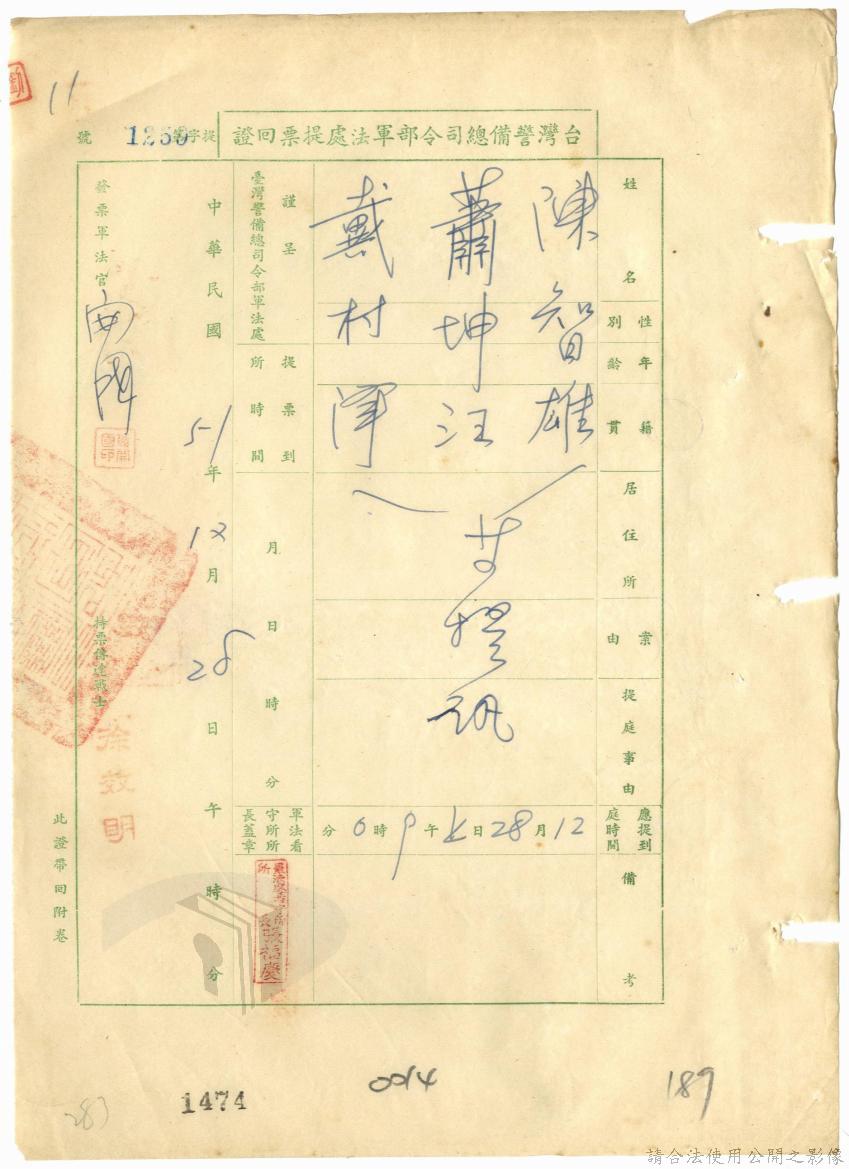 11
台灣警備總司令部軍法處提票回證
提字第1260號
姓名
陳智雄
蕭坤汪
戴村澤
性別
年齡
籍貫
居住所
案由
提庭事由
提訊
應提到庭時間
12月28日上午9時0分
備考
謹呈
臺灣警備總司令部軍法處
提票到所時間
月日時分
軍法看守所所長蓋章
中華民國51年12月28日午時分
發票軍法官
持票傳達戰士
徐效明
此證帶回附卷
1474
0014
189
283
請合法使用公開之影像